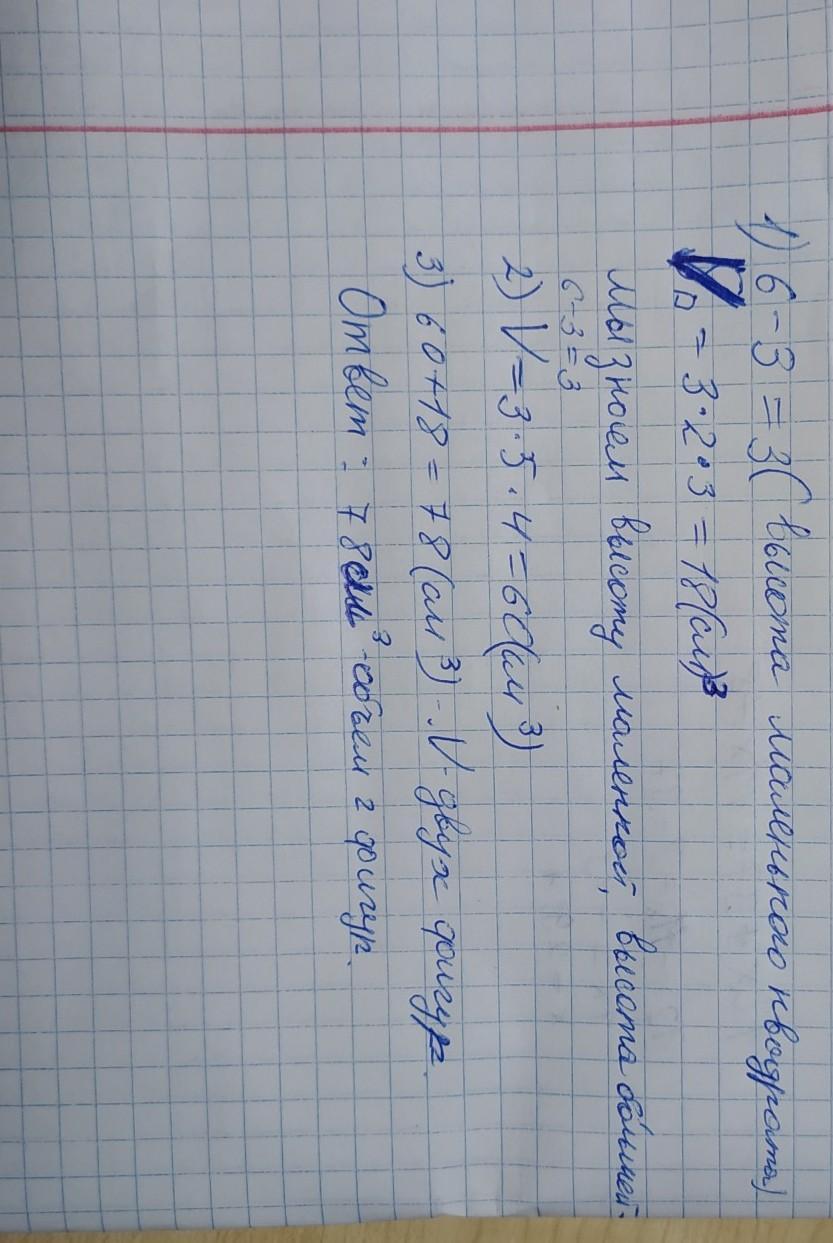 1) 6 - 3 = 3 ( высота маленького квадрата)
V□ = 3·2·3 = 18(см)³
Мы знаем высоту маленкой, высота большей-
6-3=3
2) V = 3·5·4 = 60(см³)
3) 60+18 = 78(см³) - V двух фигур.
Ответ: 78см³-объем 2 фигур.